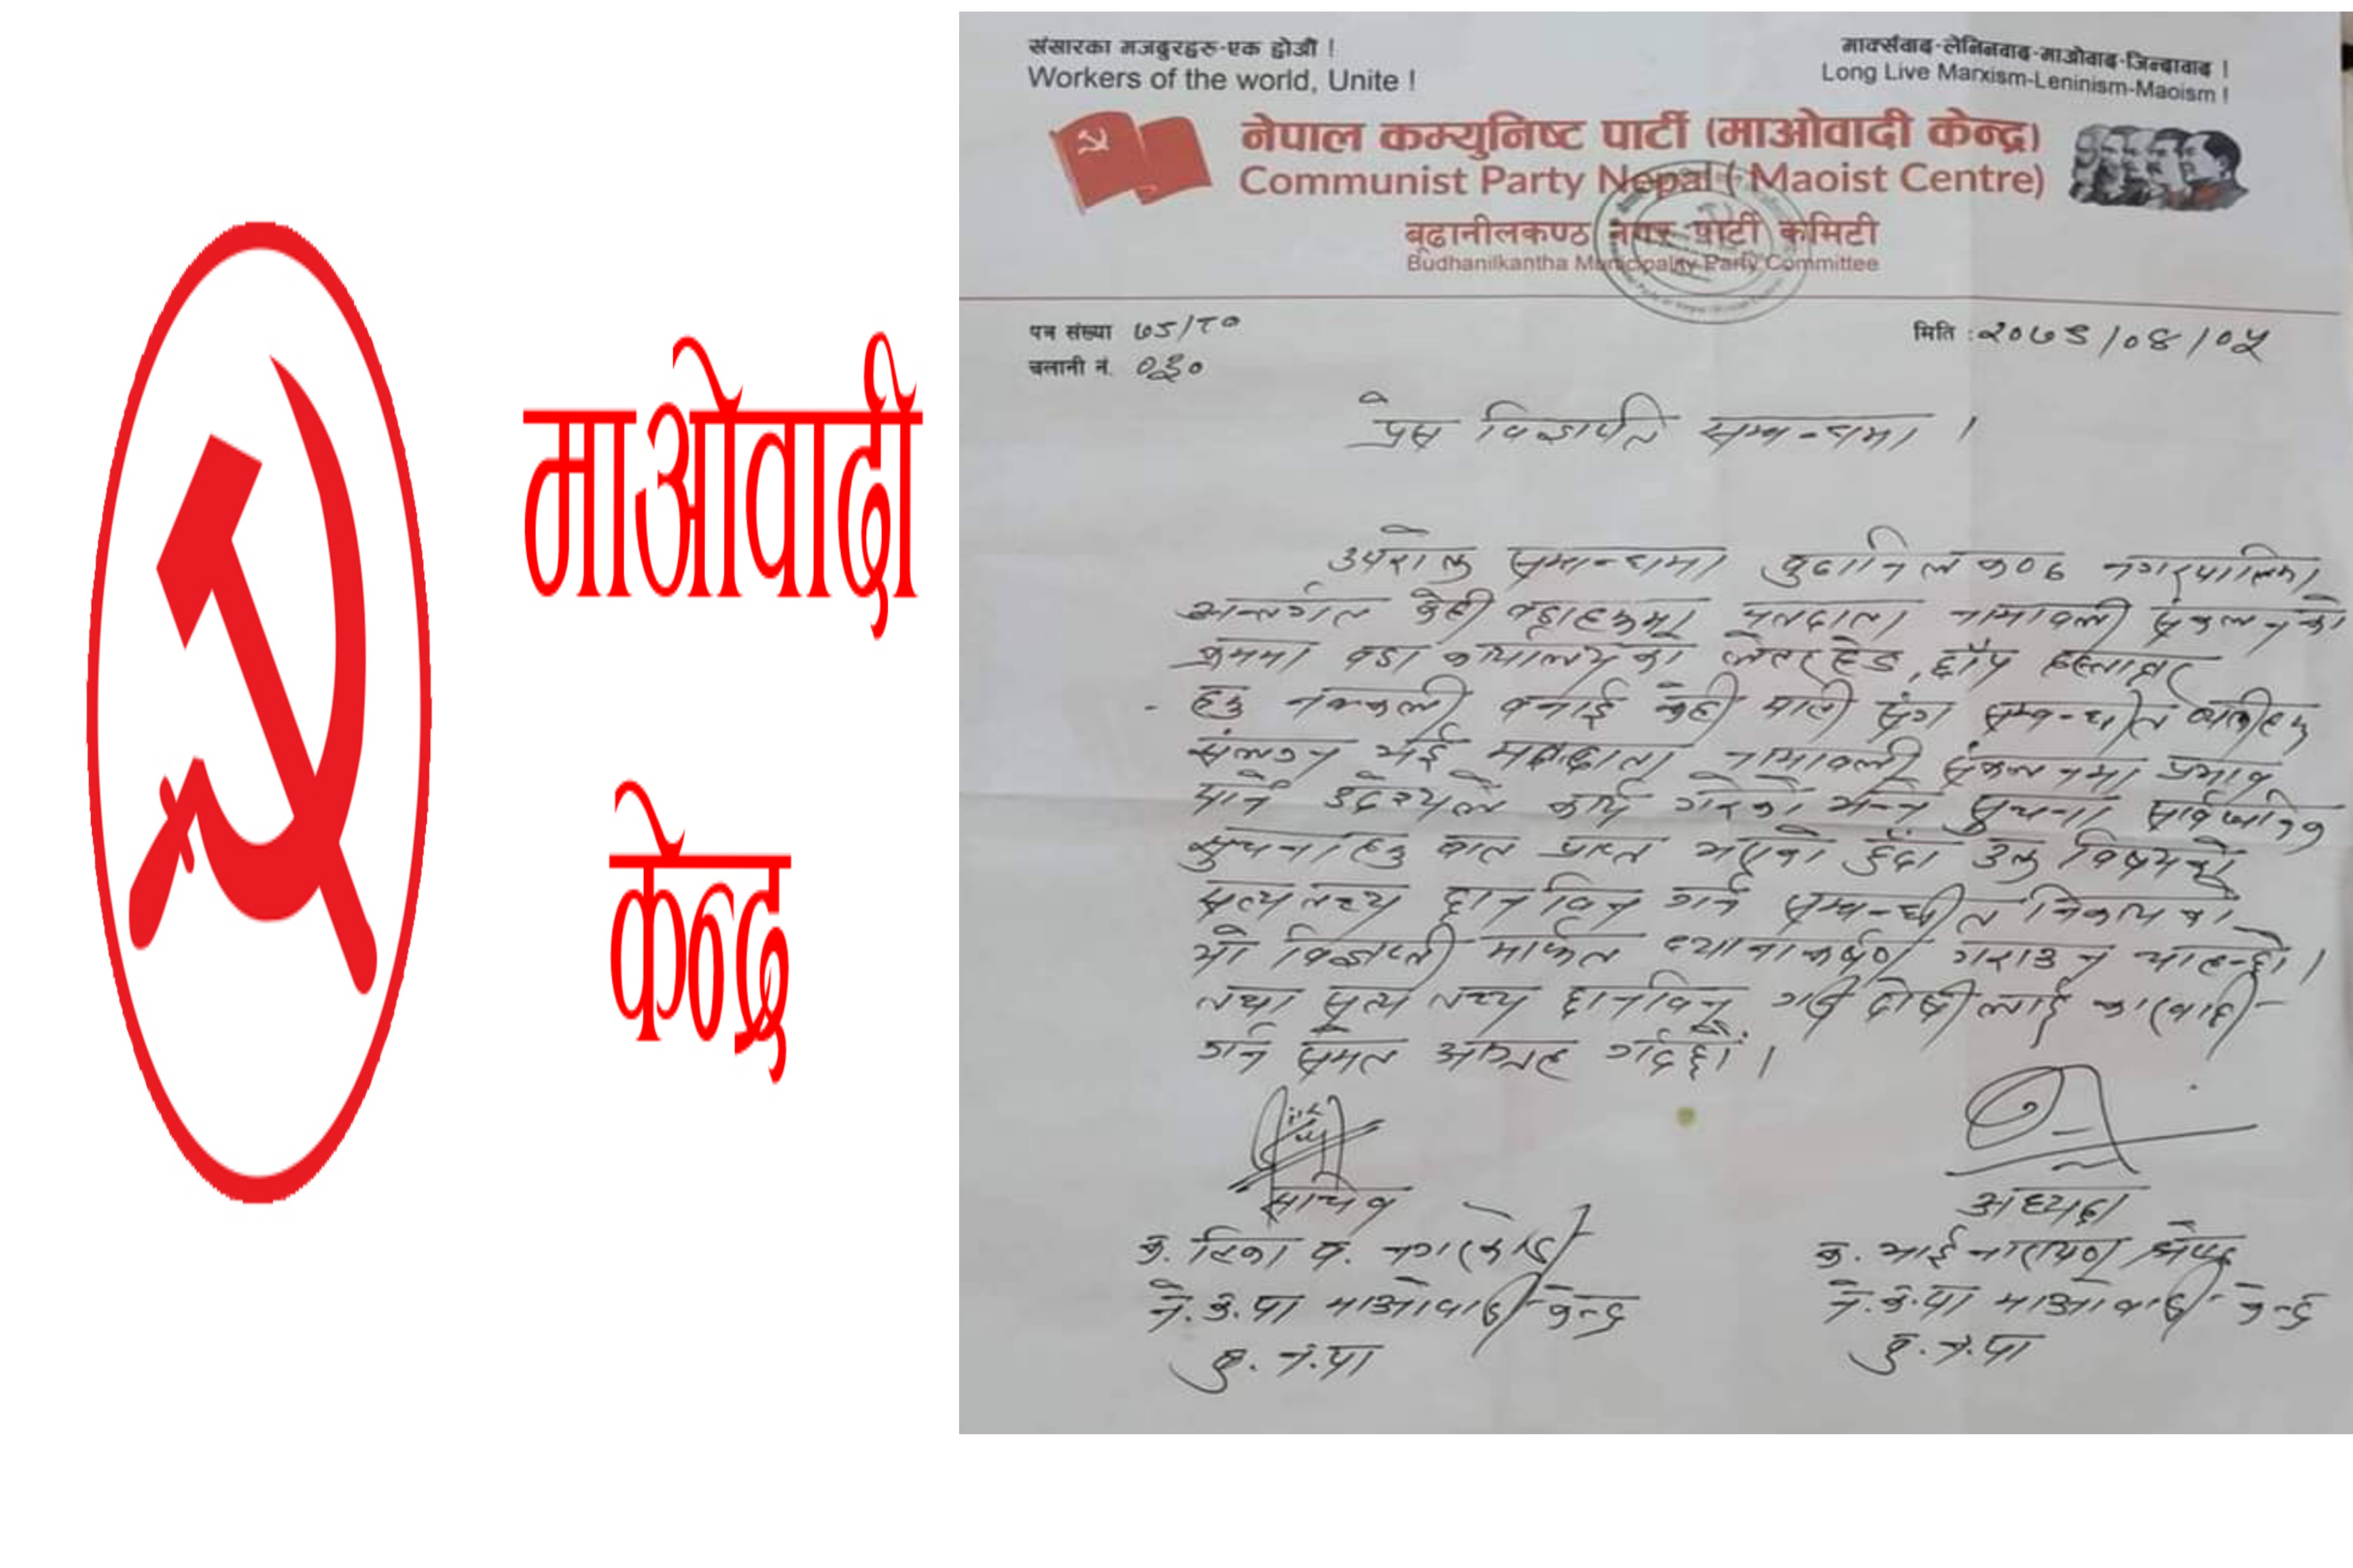 माओवादी
केन्द्र
संसारका मजदुरहरु-एक होऔं !
Workers of the world, Unite !
मार्क्सवाद-लेनिनवाद-माओवाद-जिन्दावाद !
Long Live Marxism-Leninism-Maoism !
नेपाल कम्युनिष्ट पार्टी (माओवादी केन्द्र)
Communist Party Nepal ( Maoist Centre)
बूढानीलकण्ठ नगर पार्टी कमिटी
Budhanilkantha Municipality Party Committee
पत्र संख्या
मिति :
चलानी नं.
प्रेष विज्ञप्ति सम्बन्धमा ।
उपरोक्त सम्बन्धमा बुढानिलकण्ठ नगरपालिका
अन्तर्गत केही वडाहरुमा मतदाता नामावली संकलनको
क्रममा वडा कार्यालयका लेटरहेड, छाप हस्ताक्षर
हरु नक्कली बनाई केही पार्टी संग सम्बन्धीत व्यक्तीहरु
संलग्न भई मतदाता नामावली संकलनमा प्रभाव
पार्ने उदेश्यले कार्य गरेको भन्ने सुचना सार्वजनिक
सुचनाहरु बाट प्राप्त भएको हुँदा उक्त विषयको
सत्य तथ्य छानविन गर्न सम्बन्धीत निकायको
यो विज्ञप्ती मार्फत ध्यानाकर्षण गराउन चाहन्छौ ।
तथा सत्य तथ्य छानविन गरी दोषीलाई कारवाही
गर्न समेत आग्रह गर्दछौं ।
सचिव
अध्यक्ष
क. टिका ब. नगरकोटी
क. भाई नारायण श्रेष्ठ
ने.क.पा माओवादी केन्द्र
ने.क.पा माओवादी केन्द्र
बु. न.पा
बु. न.पा